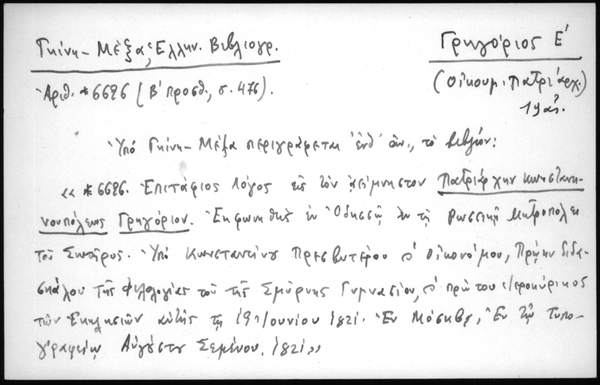 Γκίνη - Μέξα, Ἑλλην. Βιβλιογρ.
Γρηγόριος Ε'
Ἀριθ. *6626 (Β' προσθ., σ. 476).
(Οἰκουμ. Πατριάρχ.)
19 αἰ.
Ὑπό Γκίνη - Μέξα περιγράφεται ἐνθ' ἀν., τό βιβλίον:
«*6626. Ἐπιτάφιος λόγος εἰς τόν ἀείμνηστον Πατριάρχην Κωνσταντι-
νουπόλεως Γρηγόριον. Ἐκφωνηθείς ἐν Ὀδησσῷ ἐν τῇ Ρωσσικῇ Μητροπόλει
τοῦ Σωτῆρος. Ὑπό Κωνσταντίνου Πρεσβυτέρου Οἰκονόμου, Πρῴην διδα-
σκάλου τῆς Φιλολογίας τοῦ τῆς Σμύρνης Γυμνασίου, πρώτου ἱεροκήρυκος
τῶν Ἐκκλησιῶν αὐτῆς τῇ 19 Ἰουνίου 1821. Ἐν Μόσχᾳ, Ἐν τῇ Τυπο-
γραφίᾳ Αὐγούστου Σεμένου, 1821»